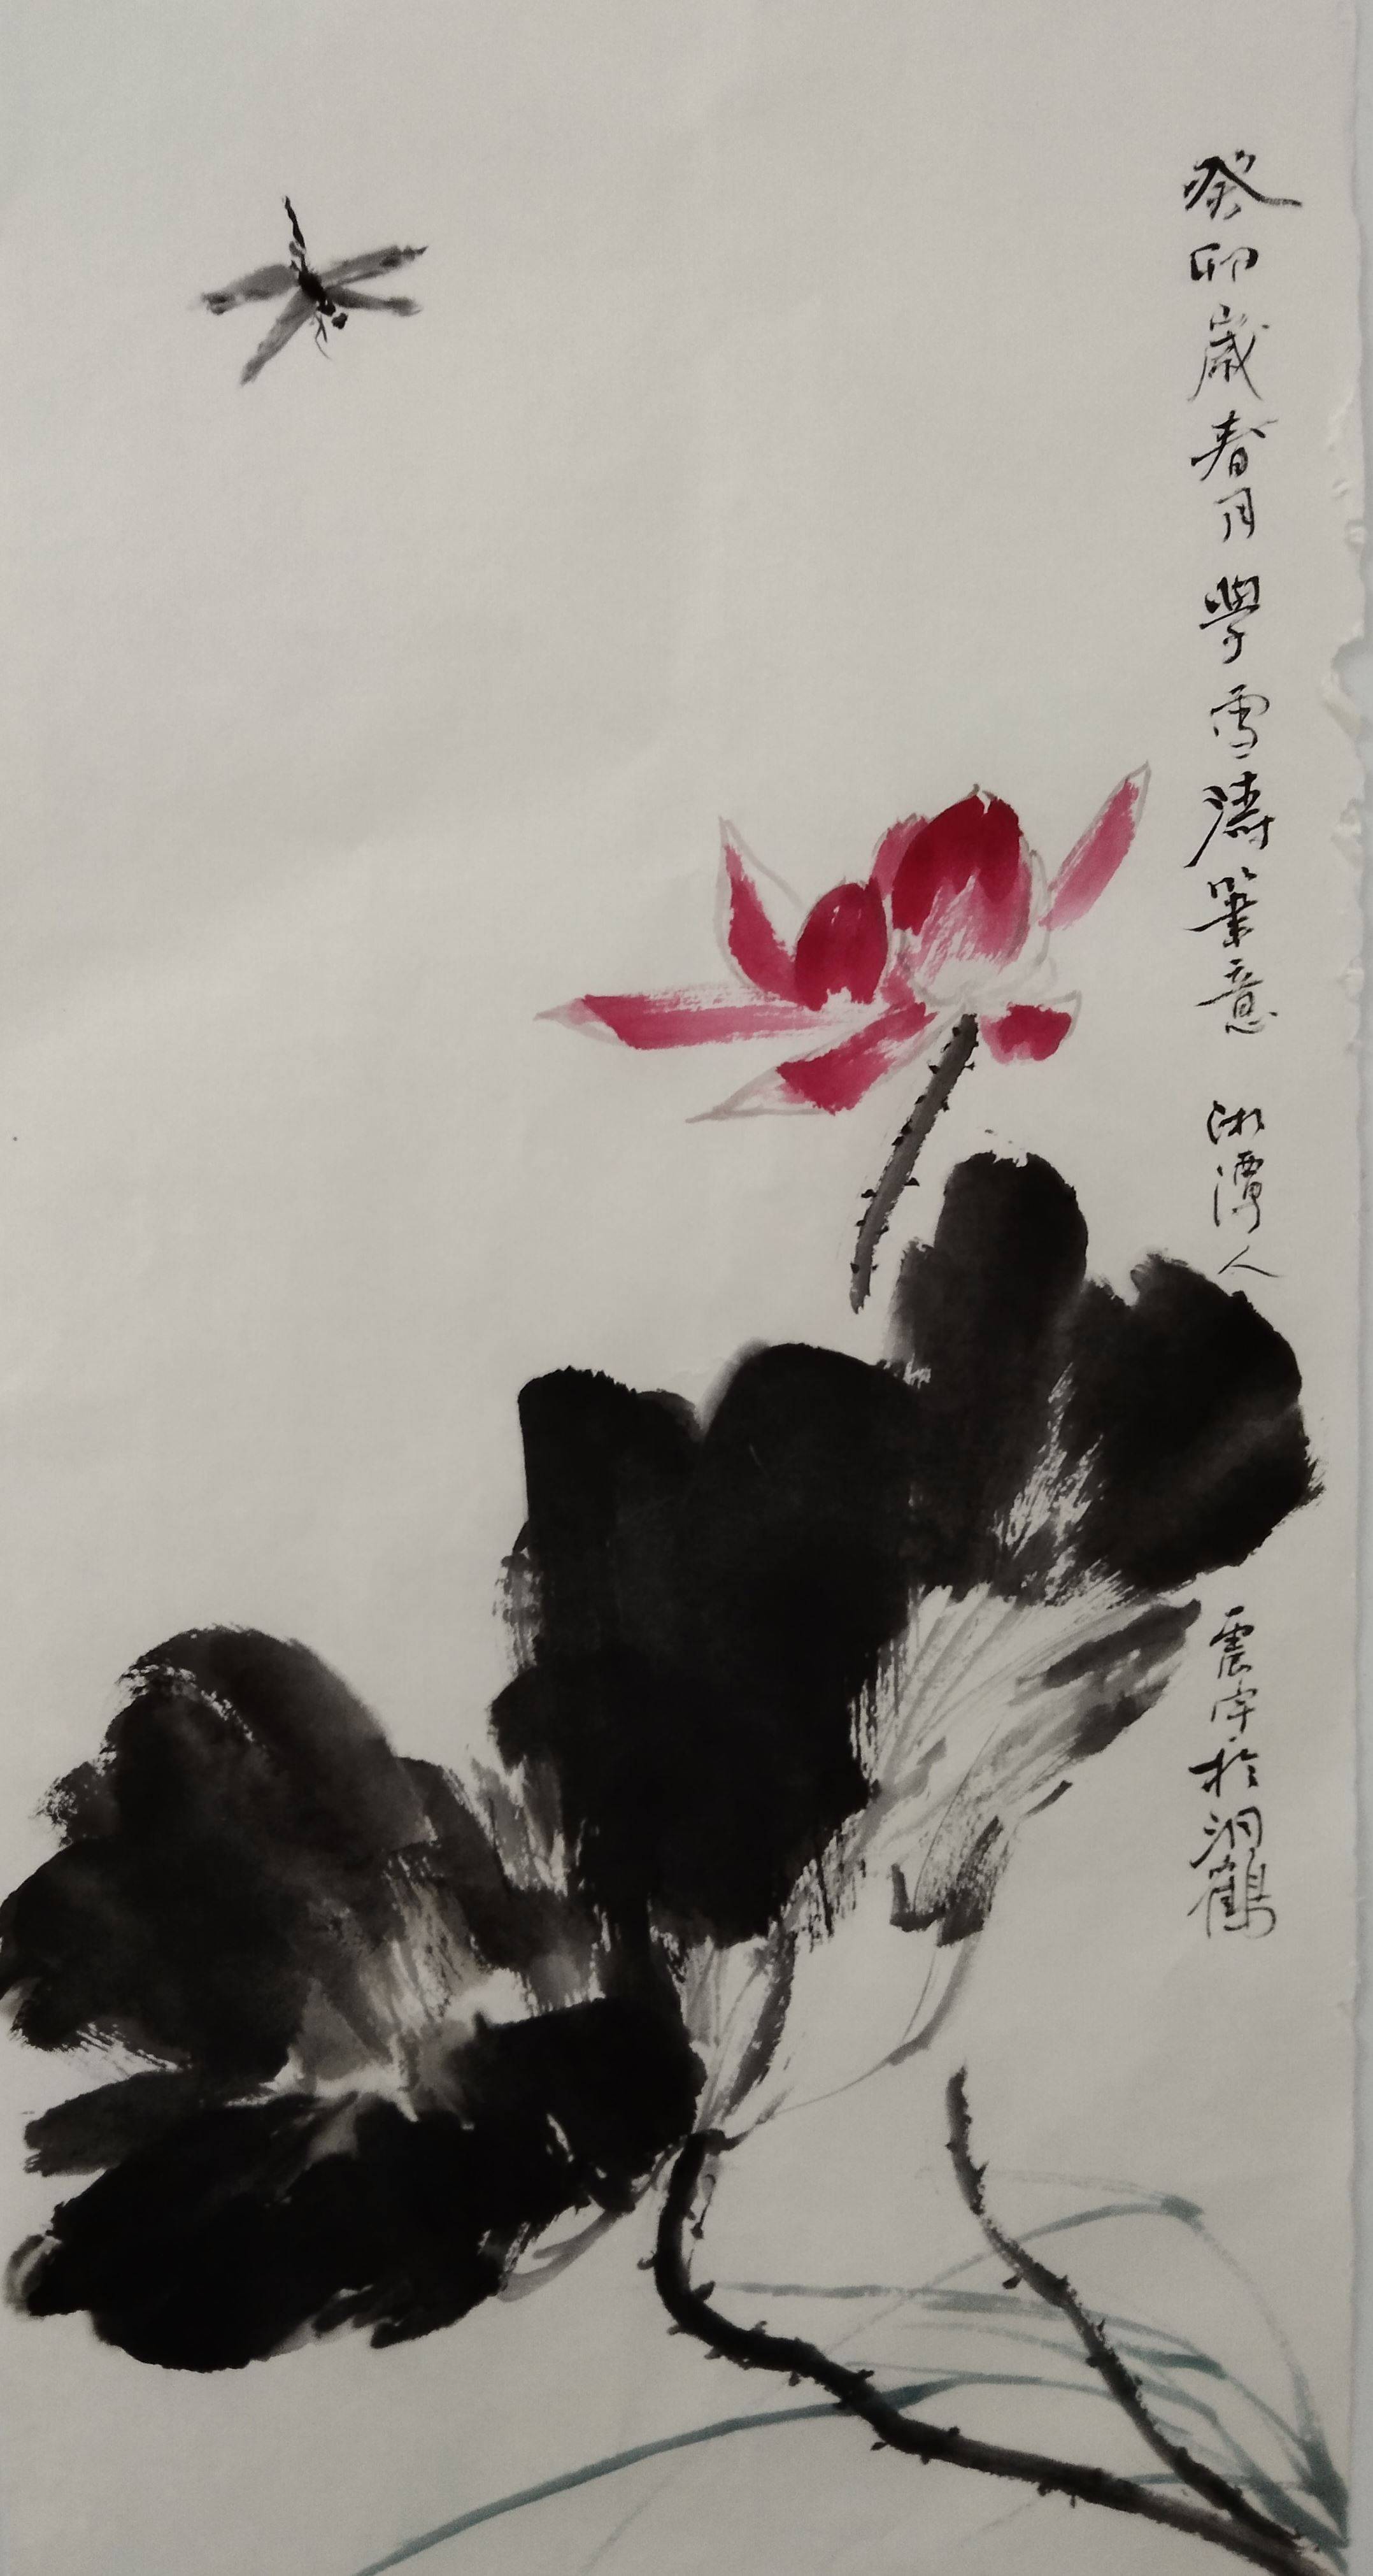 癸卯歲春月 學雪濤筆意 湘潭人 震宇於洞鶴